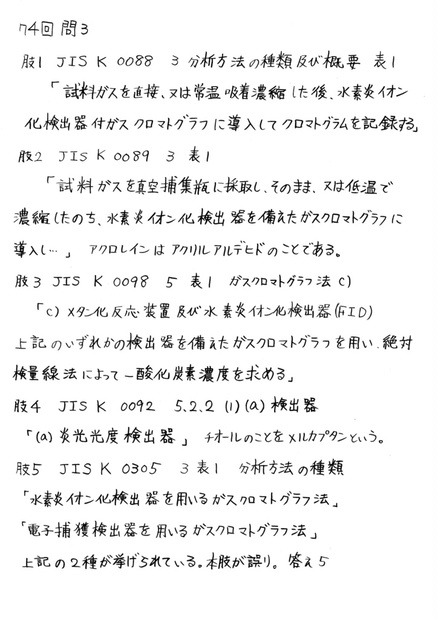 74回 問3
肢1 JIS K 0088 3 分析方法の種類及び概要 表1
「試料ガスを直接、又は常温吸着濃縮した後、水素炎イオン
化検出器付ガスクロマトグラフに導入してクロマトグラムを記録する」
肢2 JIS K 0089 3 表1
「試料ガスを真空捕集瓶に採取し、そのまま、又は低温で
濃縮したのち、水素炎イオン化検出器を備えたガスクロマトグラフに
導入し…」 アクロレインはアクリルアルデヒドのことである。
肢3 JIS K 0098 5 表1 ガスクロマトグラフ法 c)
「c) メタン化反応装置及び水素炎イオン化検出器(FID)
上記のいずれかの検出器を備えたガスクロマトグラフを用い、絶対
検量線法によって一酸化炭素濃度を求める」
肢4 JIS K 0092 5.2.2 (1)(a) 検出器
「(a) 炎光光度検出器」 チオールのことをメルカプタンという。
肢5 JIS K 0305 3 表1 分析方法の種類
「水素炎イオン化検出器を用いるガスクロマトグラフ法」
「電子捕獲検出器を用いるガスクロマトグラフ法」
上記の2種が挙げられている。本肢が誤り。 答え5